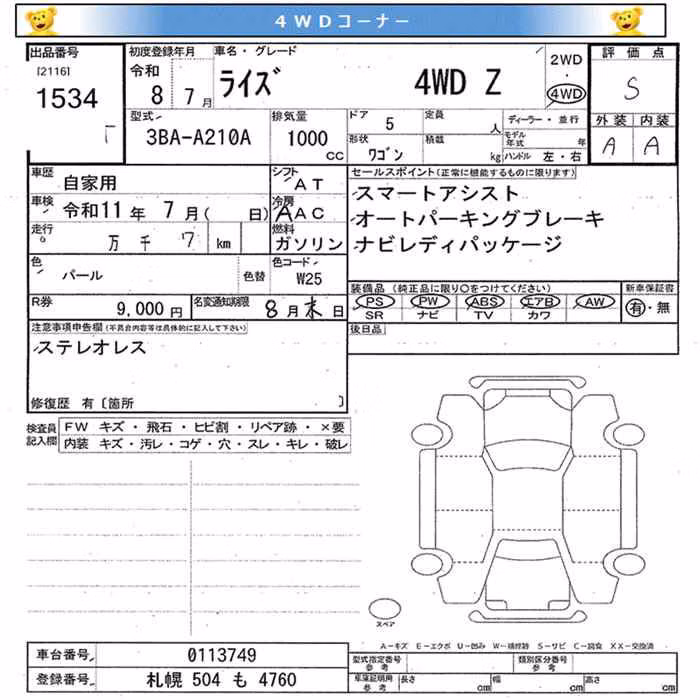 4WDコーナー
出品番号 初度登録年月 車名・グレード 2WD 評価点
[2116] 令和 ・ S
1534 8 7月 ライズ 4WD Z 4WD
型式 排気量 ドア 5 定員 人 ディーラー・並行 外装 内装
3BA-A210A 1000 cc 形状 ワゴン 積載 kg モデル年式 年 ハンドル 左・右 A A
車歴 自家用 シフト AT セールスポイント(正常に機能するものに限ります)
車検 令和11年 7月( 日) 冷房 AAC スマートアシスト
走行 万 千 7 km 燃料 ガソリン オートパーキングブレーキ
ナビレディパッケージ
色 パール 色替 色コード W25
装備品 (純正品に限り○をつけてください) 新車保証書
R券 9,000円 名変通知期限 8月末日 PS PW ABS エアB AW 有・無
SR ナビ TV カワ
注意事項申告欄(不具合内容等は具体的に記入して下さい) 後日品
ステレオレス
修復歴 有〔箇所 〕
検査員記入欄 FW キズ・飛石・ヒビ割・リペア跡・×要
内装 キズ・汚レ・コゲ・穴・スレ・キレ・破レ
スペア
A-キズ E-エクボ U-凹み W-補修跡 S-サビ C-腐食 XX-交換済
車台番号 0113749 型式指定番号 参考 類別区分番号 参考
登録番号 札幌 504 も 4760 車庫証明用 参考 長さ cm 幅 cm 高さ cm